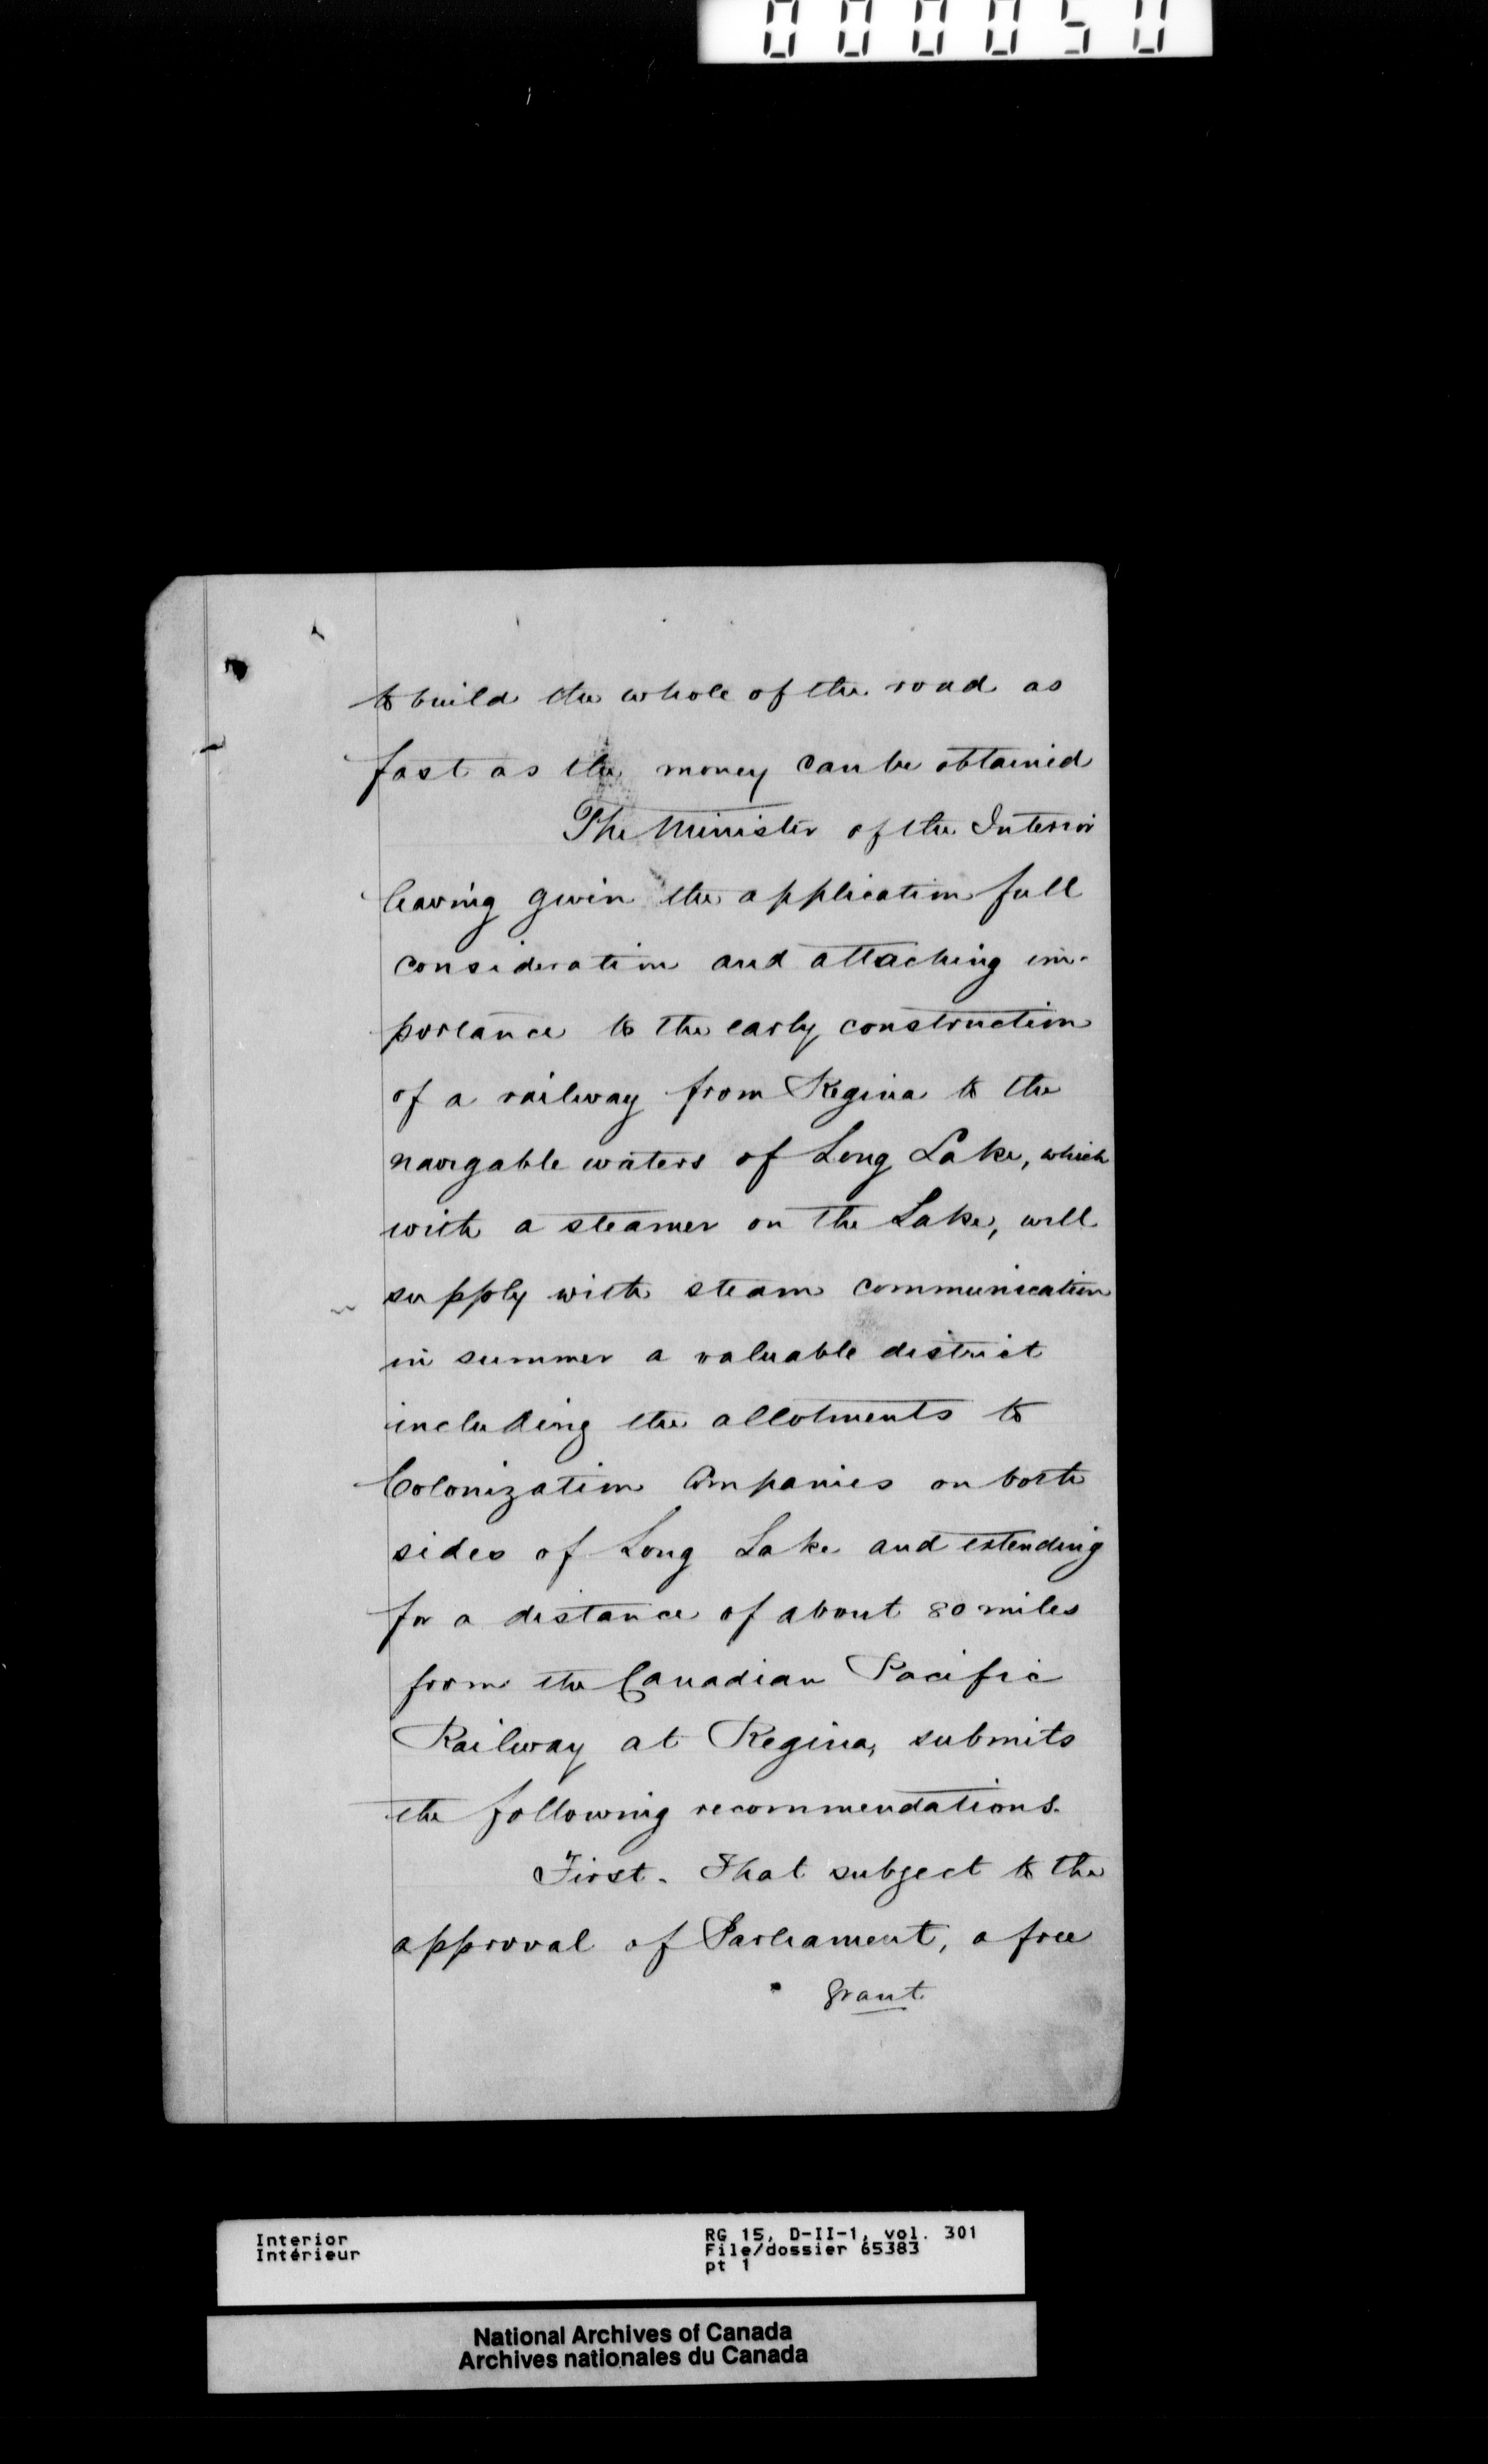 000050
to build the whole of the road as
fast as the money can be obtained
The Minister of the Interior
having given the application full
consideration and attaching im-
portance to the early construction
of a railway from Regina to the
navigable waters of Long Lake, which
with a steamer on the Lake, will
supply with steam communication
in summer a valuable district
including the allotments to
Colonization Companies on both
sides of Long Lake and extending
for a distance of about 80 miles
from the Canadian Pacific
Railway at Regina, submits
the following recommendations.
First. That subject to the
approval of Parliament, a free
grant
Interior
Intérieur
RG 15, D-II-1, vol. 301
File/dossier 65383
pt 1
National Archives of Canada
Archives nationales du Canada